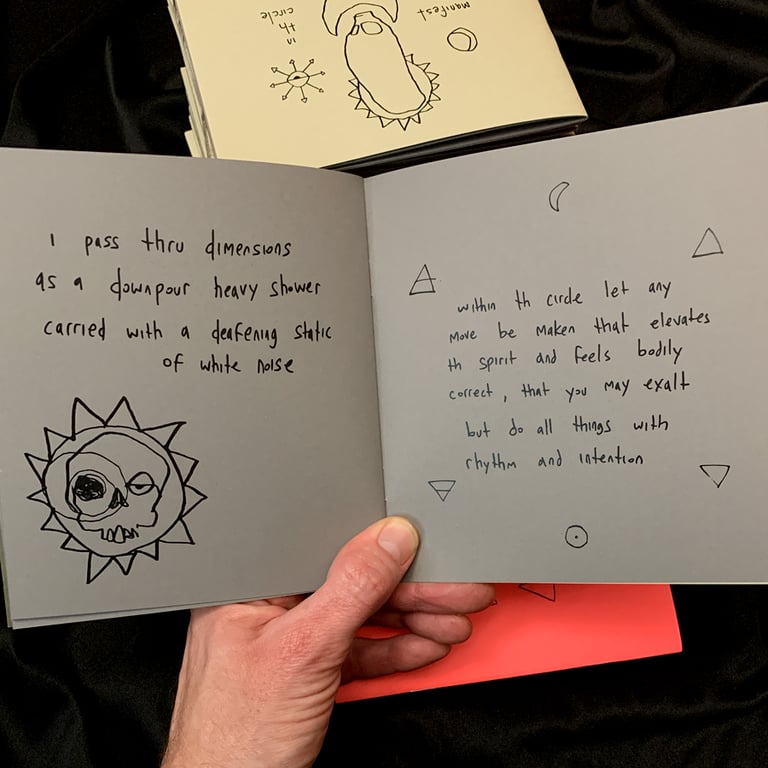 manifest
in
th
circle
I pass thru dimensions
as a downpour heavy shower
carried with a deafening static
of white noise
within th circle let any
move be maken that elevates
th spirit and feels bodily
correct, that you may exalt
but do all things with
rhythm and intention